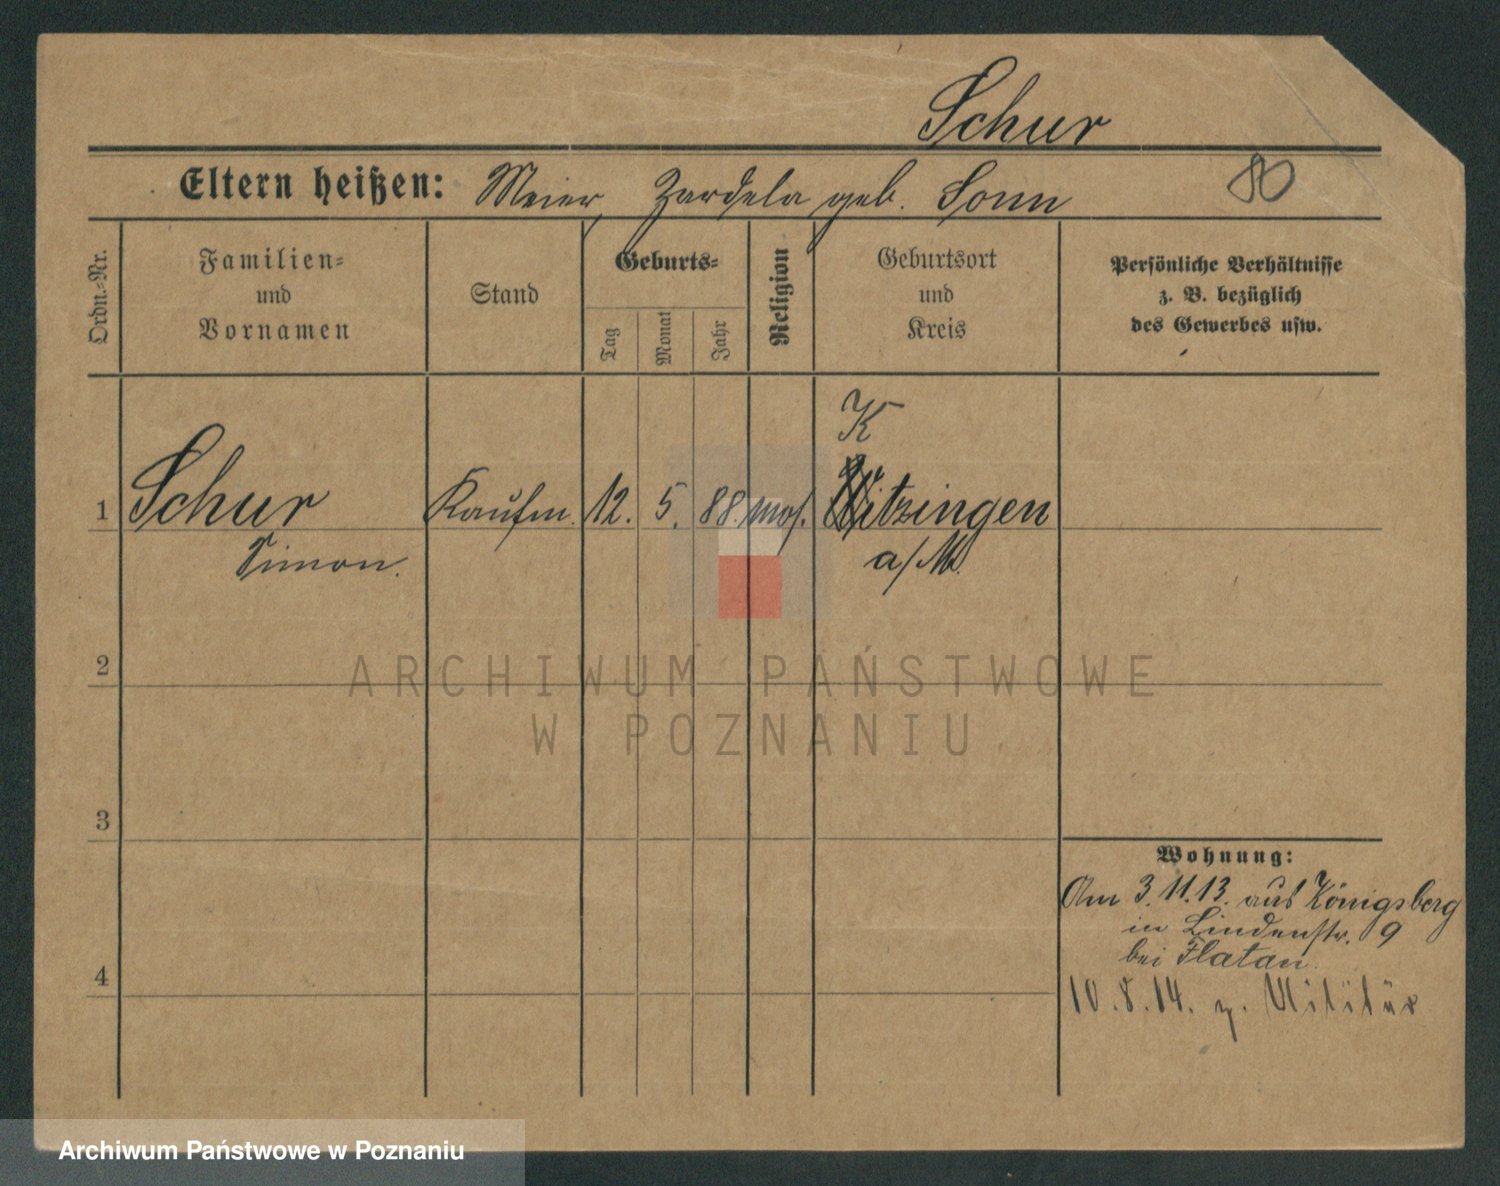 Schur
Eltern heißen: Meier, Zardela geb. Sonn
80
Ordn.-Nr.
Familien-
und
Vornamen
Stand
Geburts-
Tag
Monat
Jahr
Religion
Geburtsort
und
Kreis
Persönliche Verhältnisse
z. B. bezüglich
des Gewerbes usw.
K
1 Schur Kaufm. 12. 5. 88. mos. itzingen
Simon. a/M.
2
ARCHIWUM PAŃSTWOWE
W POZNANIU
3
Wohnung:
Am 3.11.13. aus Königsberg
in Lindenstr. 9
bei Flatau.
4
10.8.14. z. Militär
Archiwum Państwowe w Poznaniu